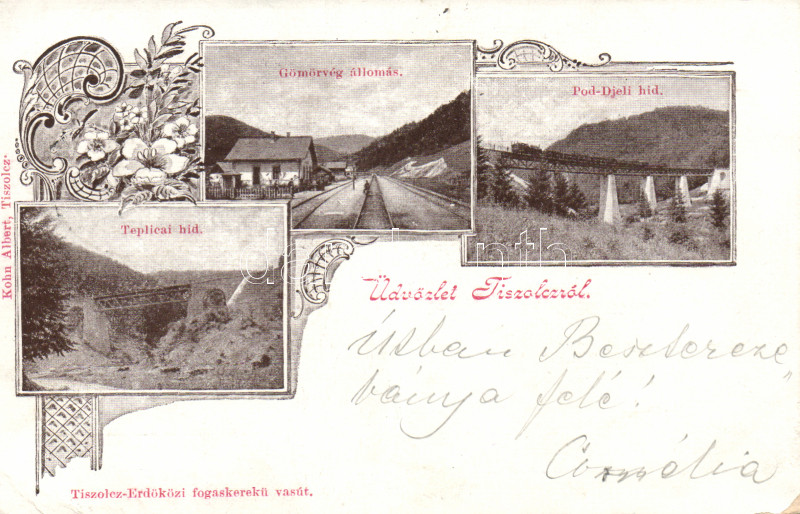 Gömörvég állomás.
Pod-Djeli hid.
Teplicai hid.
Kohn Albert, Tiszolcz.
Üdvözlet Tiszolczról.
Útban Besztercze
bánya felé!
Cornélia
Tiszolcz-Erdőközi fogaskerekű vasút.